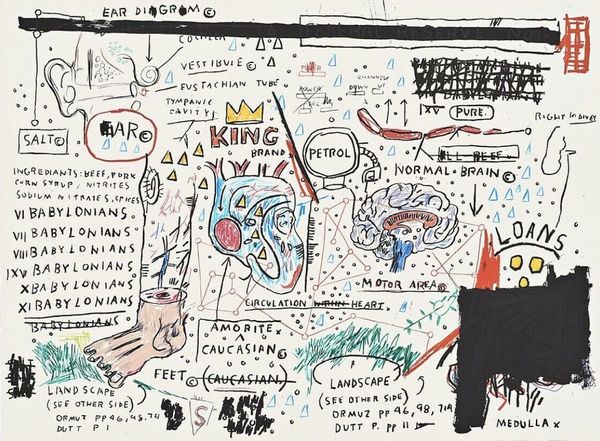 EAR DIAGRAM©
COCHLEA
VESTIBULE©
EUSTACHIAN TUBE
TYMPANIC
CAVITY
SALT©
EAR©
KING
BRAND
PETROL
XV PURE.
ALL BEEF
NORMAL BRAIN©
LOANS
INGREDIANTS: BEEF, PORK
CORN SYRUP, NITRITES
SODIUM NITRATES, SPICES
VI BABYLONIANS
VII BABYLONIANS
VIII BABYLONIANS
IXV BABYLONIANS
X BABYLONIANS
XI BABYLONIANS
BABYLONIANS
MOTOR AREA©
CIRCULATION WITHIN HEART.
AMORITE x
^
CAUCASIAN©
FEET© (CAUCASIAN)
LANDSCAPE
(SEE OTHER SIDE)
ORMUZ PP 46, 98. 74
DUTT P 1
S
LANDSCAPE
(SEE OTHER SIDE)
ORMUZ PP 46, 98, 714
DUTT P. PP 11
MEDULLA x